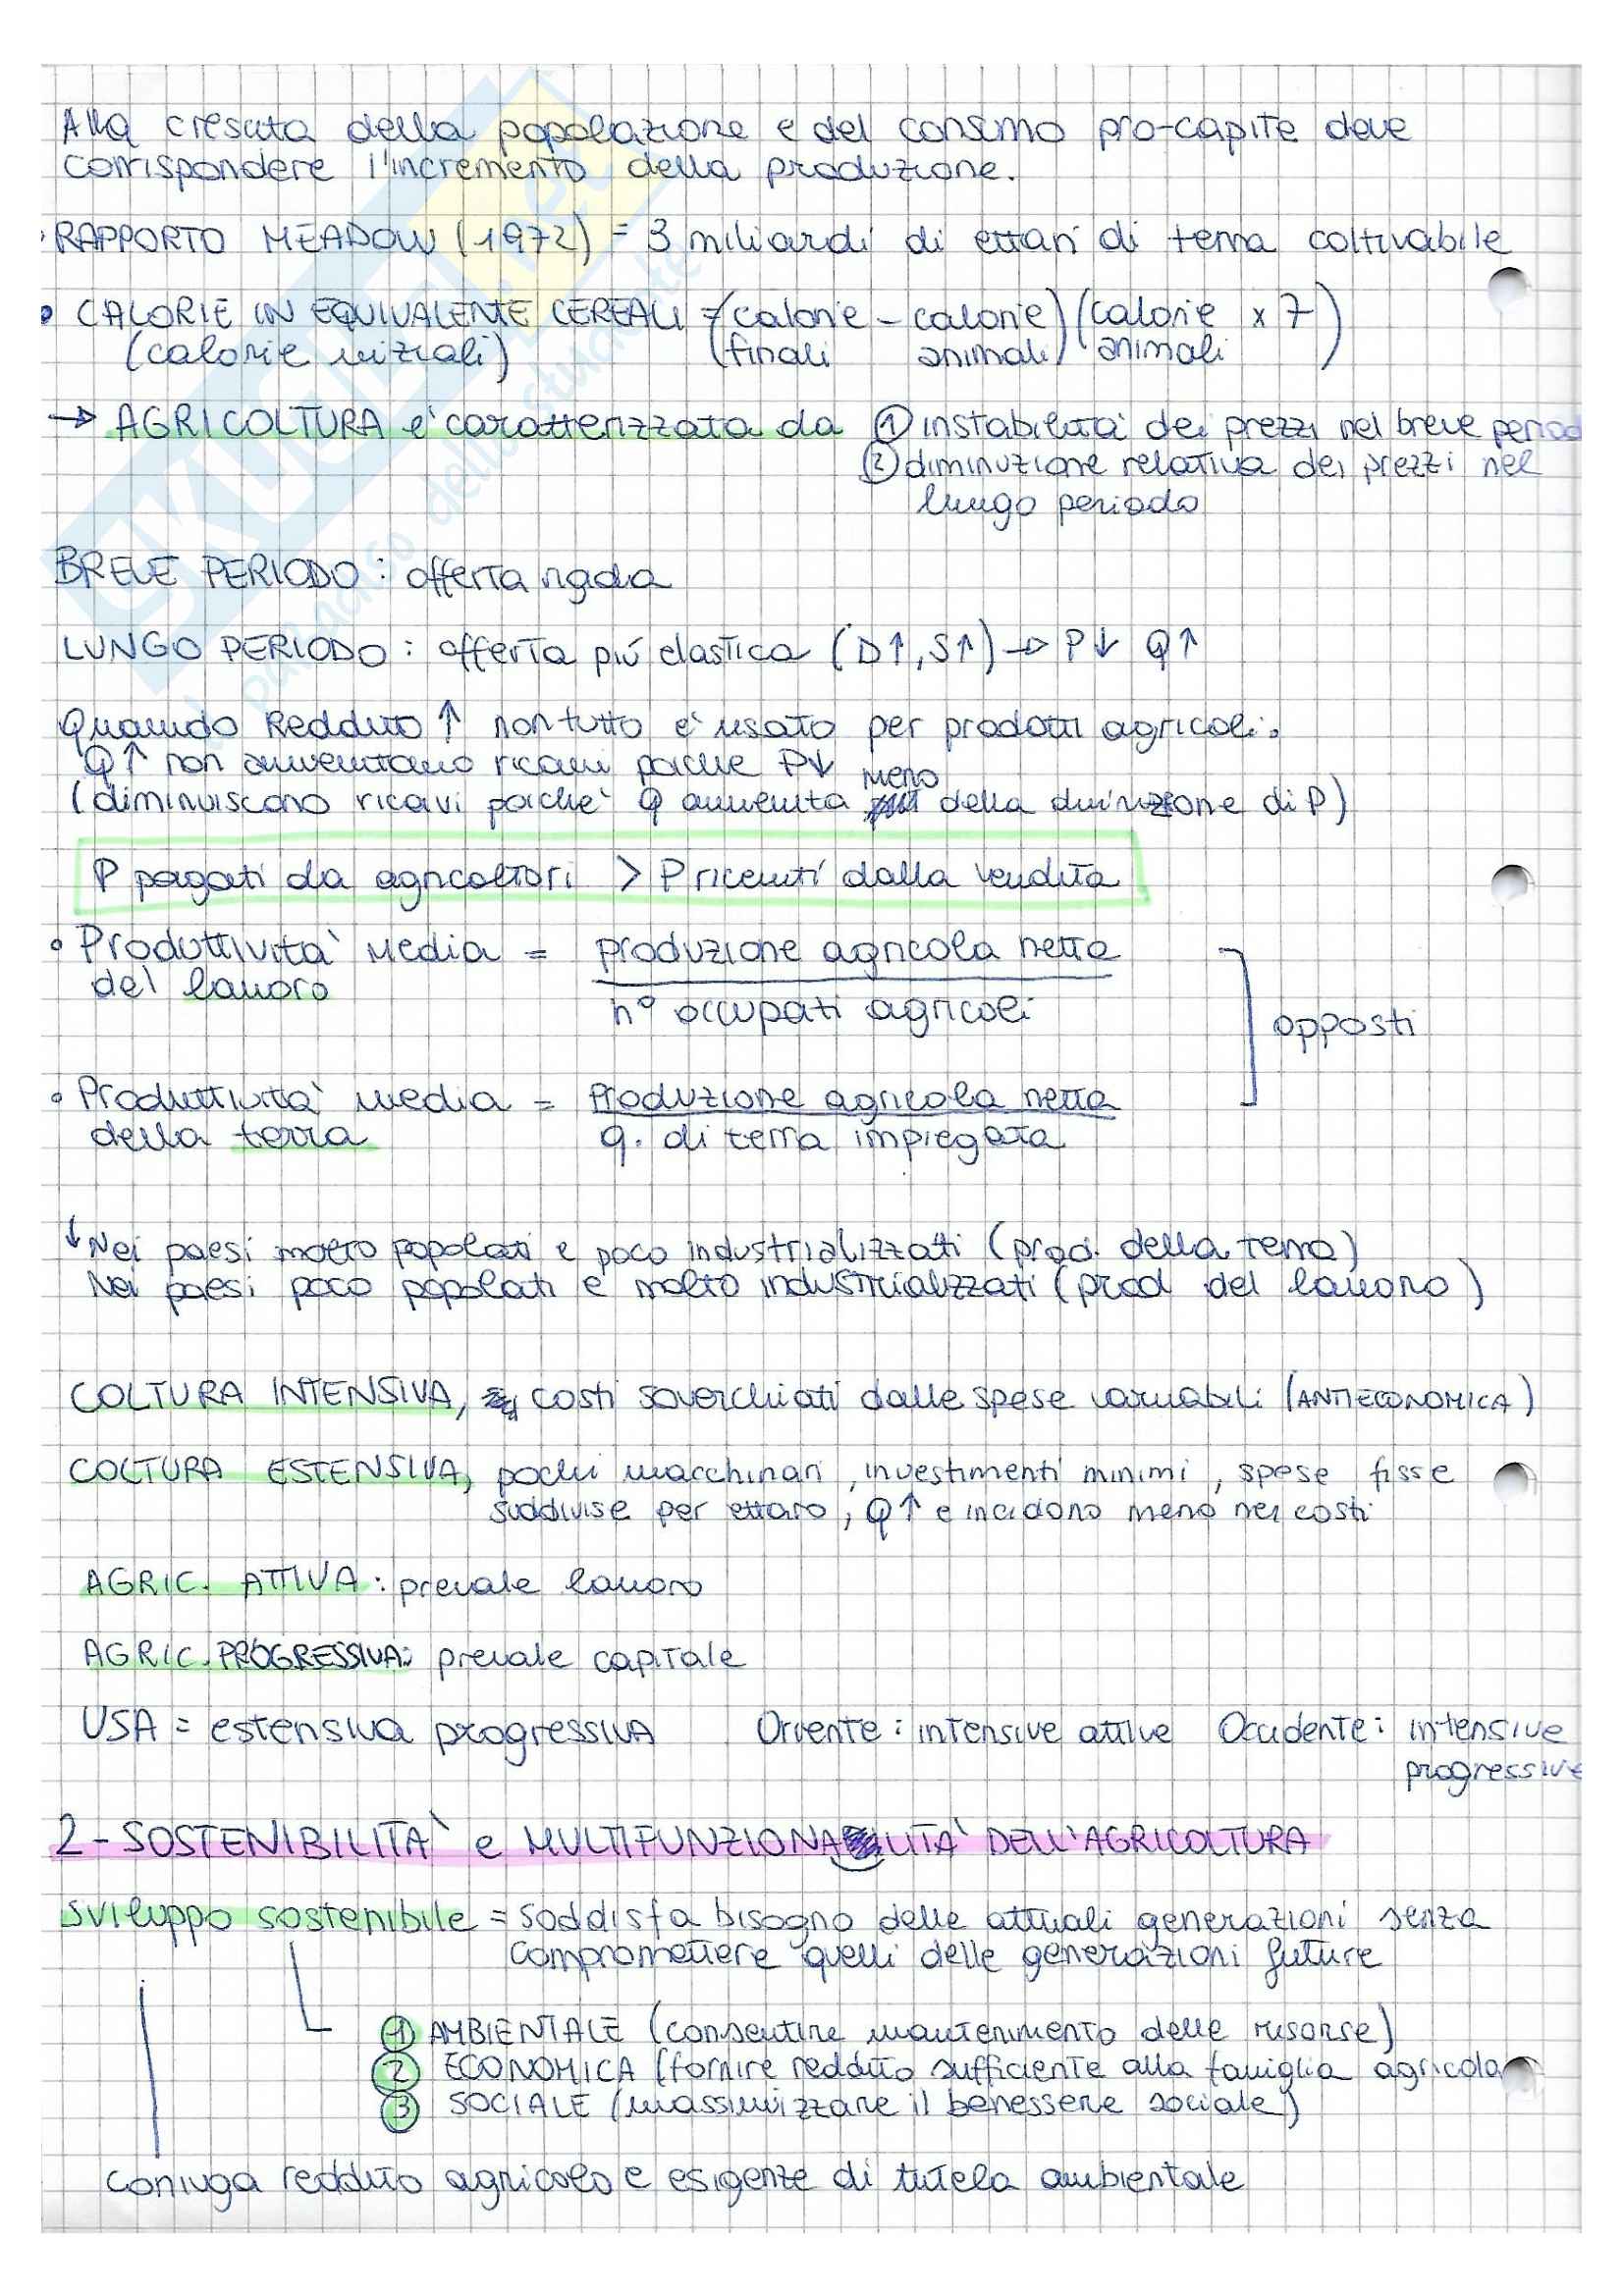 Alla crescita della popolazione e del consumo pro-capite deve
corrispondere l'incremento della produzione.
RAPPORTO MEADOW (1972) = 3 miliardi di ettari di terra coltivabile
• CALORIE IN EQUIVALENTE CEREALI = (calorie - calorie) (calorie x 7)
(calorie iniziali) (finali animali) animali
→ AGRICOLTURA e' caratterizzata da ① instabilità dei prezzi nel breve period
② diminuzione relativa dei prezzi nel
lungo periodo
BREVE PERIODO: offerta rigida
LUNGO PERIODO: offerta più elastica (D↑, S↑) → P↓ Q↑
Quando Reddito ↑ non tutto e' usato per prodotti agricoli.
Q↑ non aumentano ricavi poiche P↓
(diminuiscono ricavi poiche' Q aumenta meno della diminuzione di P)
P pagati da agricoltori > P ricevuti dalla vendita
• Produttivita' media = produzione agricola netta
del lavoro n° occupati agricoli
opposti
• Produttivita' media = Produzione agricola netta
della terra q. di terra impiegata
↓ Nei paesi molto popolati e poco industrializzati (prod. della terra)
Nei paesi poco popolati e molto industrializzati (prod del lavoro)
COLTURA INTENSIVA, costi soverchiati dalle spese variabili (ANTIECONOMICA)
COLTURA ESTENSIVA, pochi macchinari, investimenti minimi, spese fisse
suddivise per ettaro, Q↑ e incidono meno nei costi
AGRIC. ATTIVA: prevale lavoro
AGRIC. PROGRESSIVA: prevale capitale
USA = estensiva progressiva Oriente: intensive attive Occidente: intensive
progressive
2- SOSTENIBILITA' e MULTIFUNZIONALITA' DELL'AGRICOLTURA
sviluppo sostenibile = soddisfa bisogno delle attuali generazioni senza
compromettere quelli delle generazioni future
① AMBIENTALE (consentire mantenimento delle risorse)
② ECONOMICA (fornire reddito sufficiente alla famiglia agricola
③ SOCIALE (massimizzare il benessere sociale)
coniuga reddito agricolo e esigenze di tutela ambientale